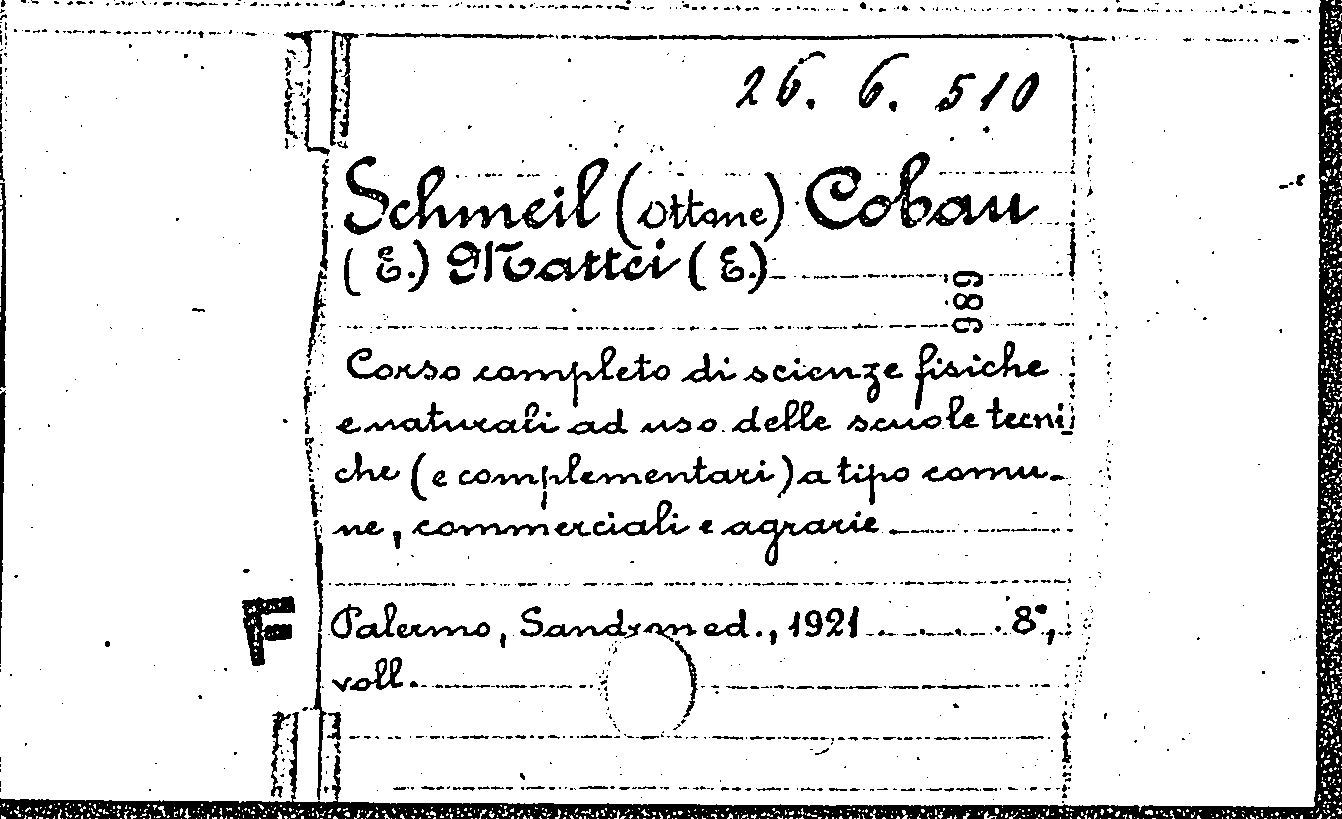 26. 6. 510
Schmeil (Ottone) Cobau
(E.) Mattei (E.)
989
Corso completo di scienze fisiche
e naturali ad uso delle scuole tecni
che (e complementari) a tipo comu-
ne, commerciali e agrarie
F
Palermo, Sandron ed., 1921 8°,
voll.